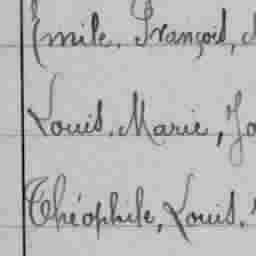 Emile, François,
Louis, Marie, Jo
Théophile, Louis,